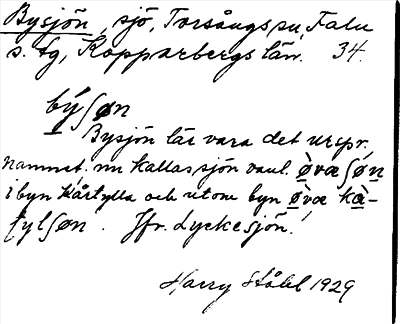 Bysjön, sjö, Torsångs sn, Falu
s. tg, Kopparbergs län. 34.
bý∫øn
Bysjön lär vara det urspr.
namnet. nu kallas sjön vanl. ø̀væ∫ǿn
i byn Kårtylla och utom byn ø̀væ kà-
tyl∫øn. Jfr. Lyckesjön.
Harry Ståhl 1929